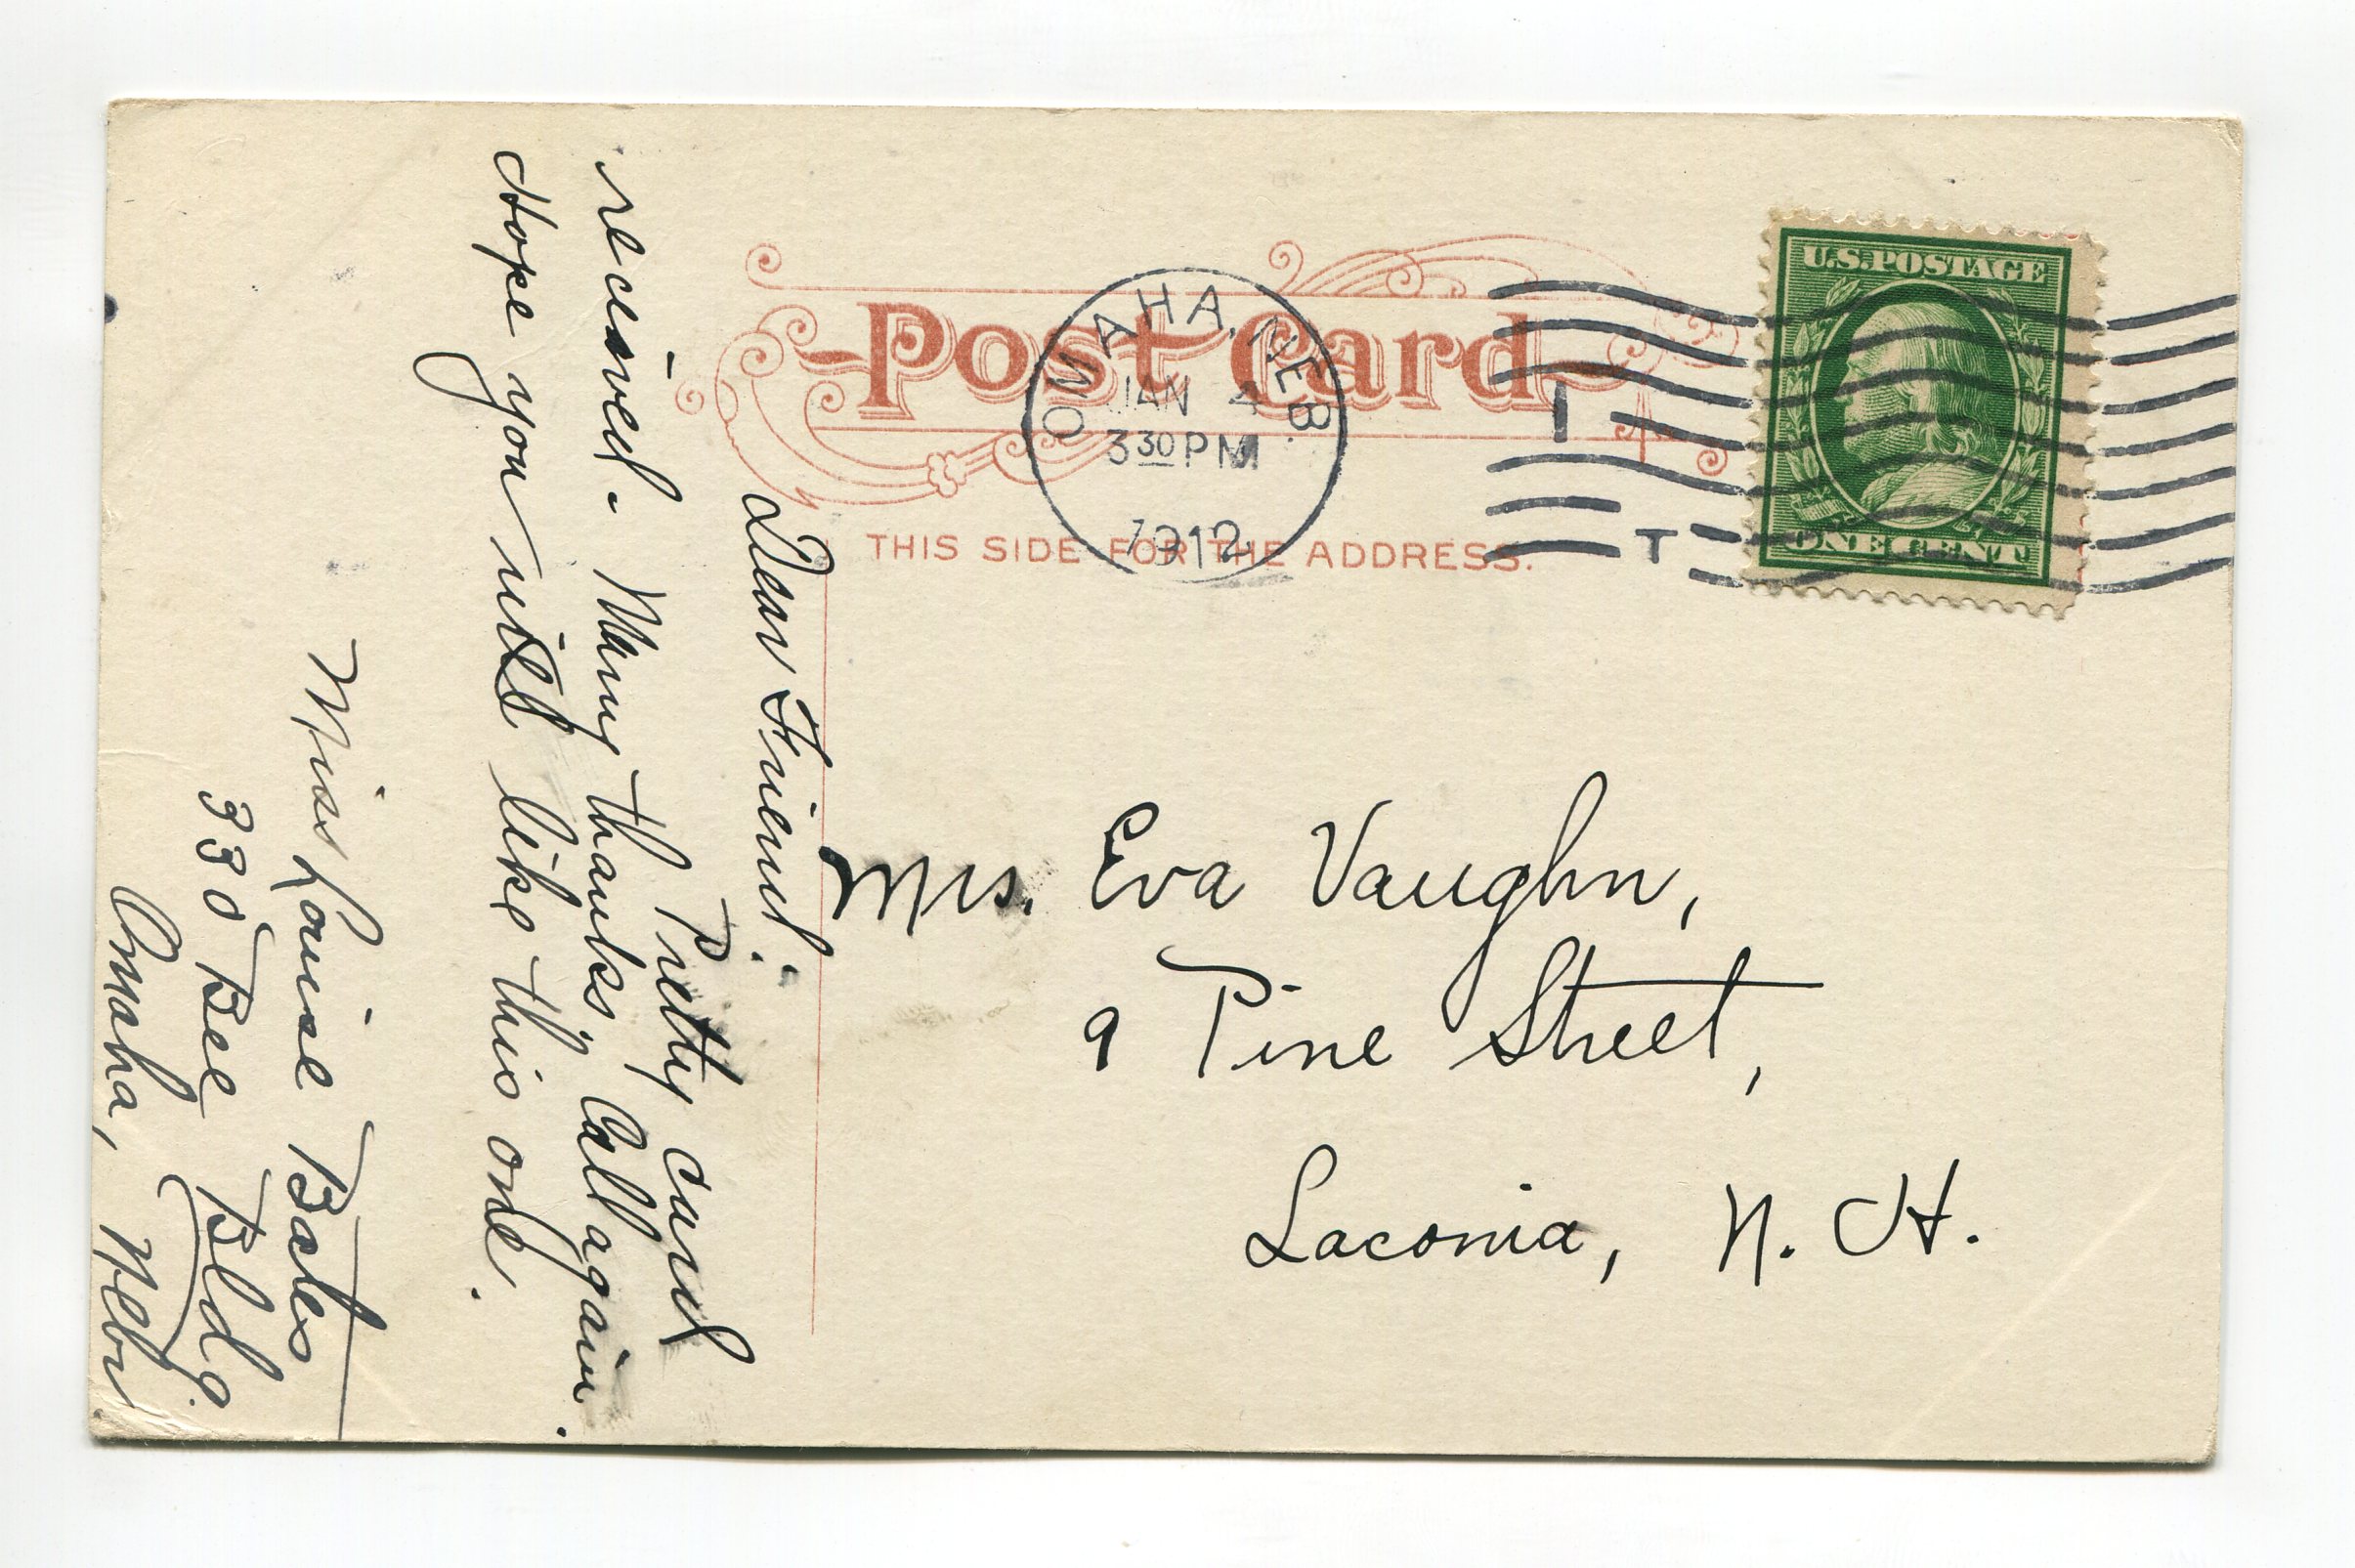 Post Card
THIS SIDE FOR THE ADDRESS.
OMAHA, NEB.
JAN 4
3 30 PM
1912
1
T
U.S. POSTAGE
ONE CENT
Dear Friend:
Pretty card
received. Many thanks, Call again.
Hope you will like this one.
Miss Louise Bates
330 Bee Bldg.
Omaha, Nebr
Mrs. Eva Vaughn,
9 Pine Street,
Laconia, N. H.